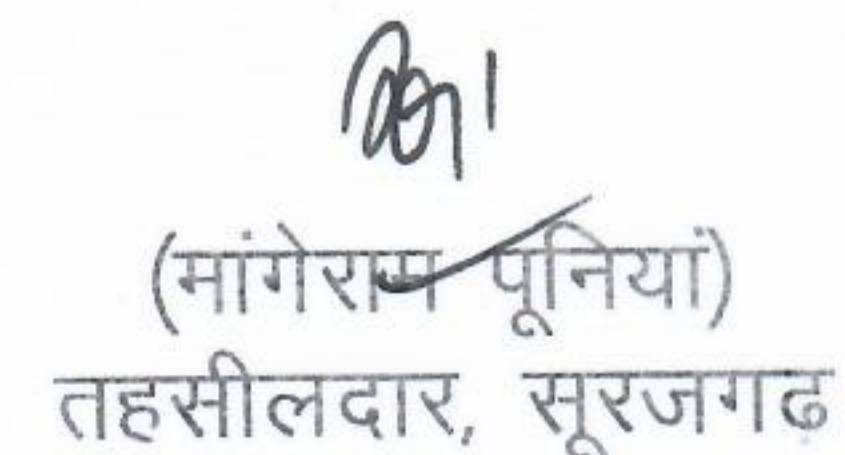 (मांगेराम पूनियां)
तहसीलदार, सूरजगढ